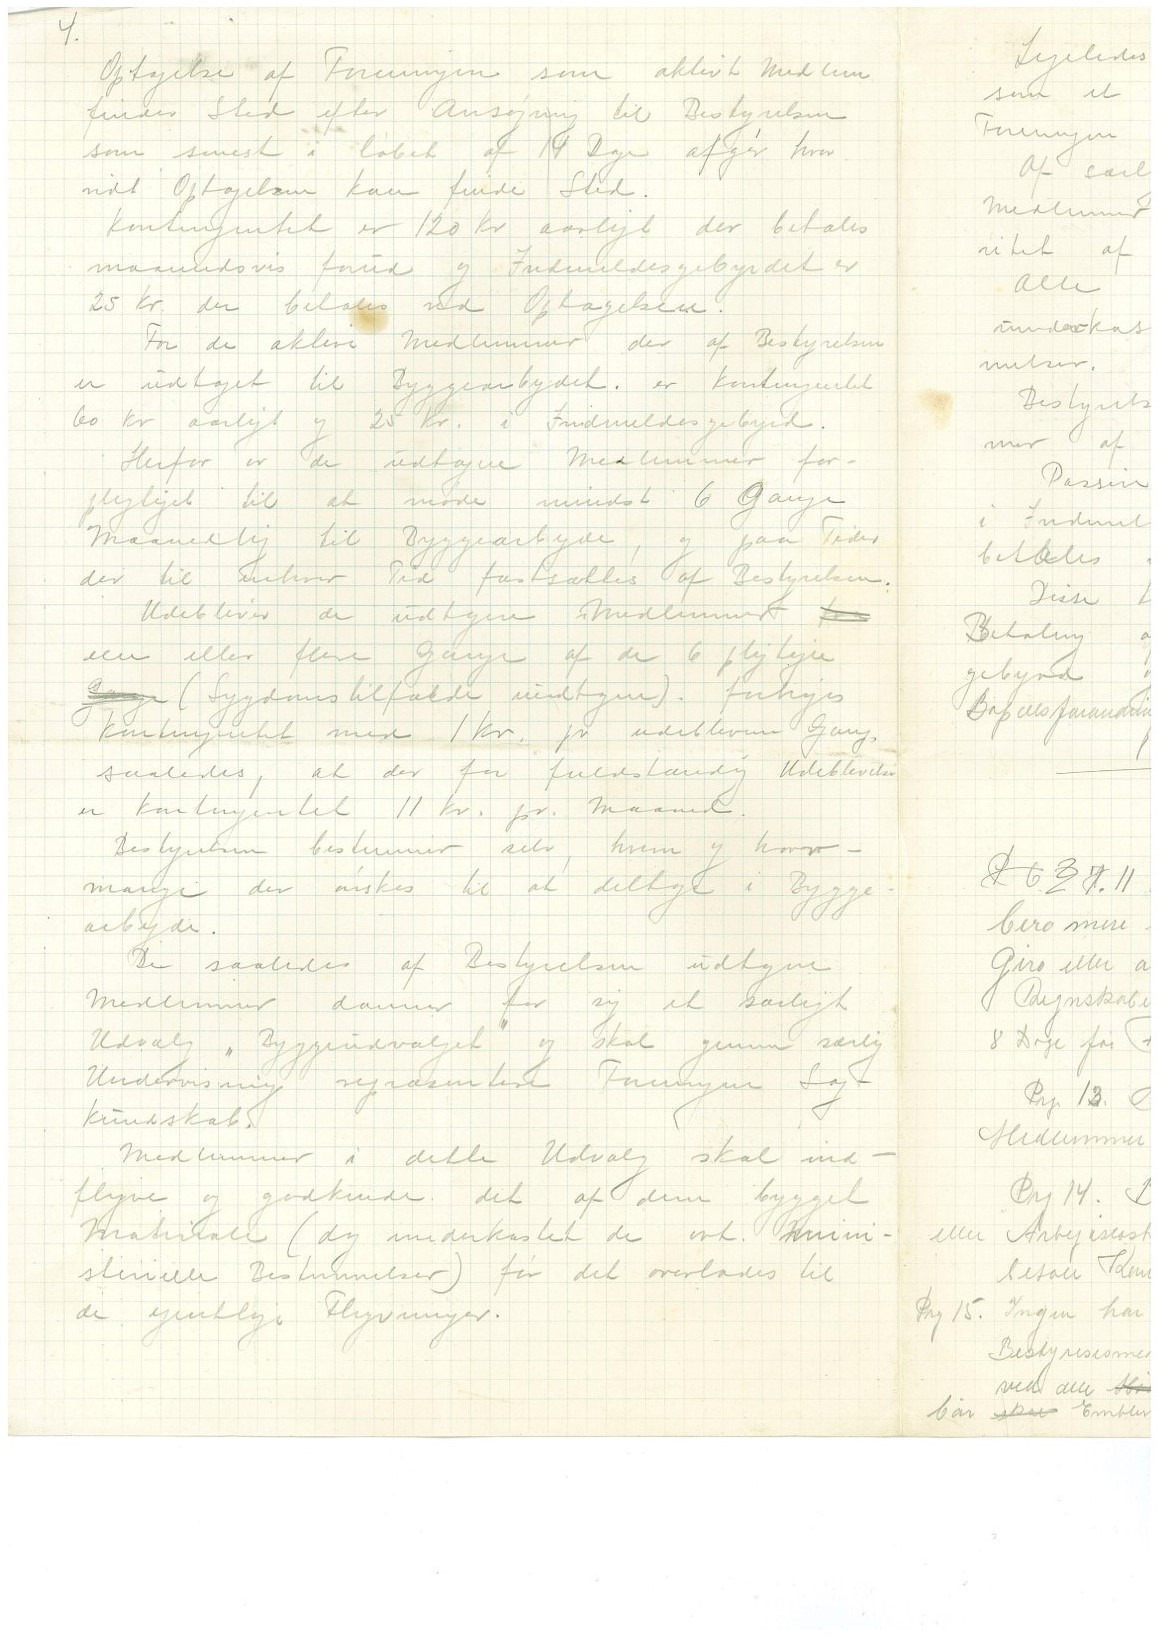 4.
Optagelse af Foreningen som aktivt Medlem
finder Sted efter Ansøgning til Bestyrelsen
som senest i løbet af 14 Dage afgør hvor
vidt Optagelsen kan finde Sted.
Kontingentet er 120 Kr aarligt der betales
maanedsvis forud og Indmeldesgebyrdet er
25 Kr. der betales ved Optagelsen.
For de aktive Medlemmer der af Bestyrelsen
er udtaget til Byggearbejdet. er Kontingentet
60 Kr aarligt og 25 Kr. i Indmeldesgebyrd.
Herfor er de udtagne Medlemmer for-
pligtiget til at møde mindst 6 Gange
Maanedlig til Byggearbejde, og paa Tider
der til enhver Tid fastsættes af Bestyrelsen.
Udebliver de udtagne Medlemmer
een eller flere Gange af de 6 pligtige
Gange (Sygdomstilfælde undtagen). forhøjes
Kontingentet med 1 Kr. pr udebleven Gang,
saaledes, at der for fuldstændig Udeblivelse
er Kontingentet 11 Kr. pr. Maaned.
Bestyrelsen bestemmer selv, hvem og hvor-
mange der ønskes til at deltage i Bygge-
arbejde.
De saaledes af Bestyrelsen udtagne
Medlemmer danner for sig et særligt
Udvalg „Byggeudvalget" og skal gennem særlig
Undervisning repræsentere Foreningen Sag-
kundskab.
Medlemmer i dette Udvalg skal ind-
flyve og godkende det af dem bygget
Materiale (dog underkastet de evt. mini-
sterielle Bestemmelser) før det overlades til
de egentlige Flyvninger.
Ligeledes
som et
Foreningen
Af særl
Medlemmer
ritet af
Alle
underkas
melser.
Bestyrels
mer af
Passive
i Indmel
betales
Disse
Betaling
gebyrd
Bopælsforandrin
11
bero mere
Giro eller a
Regnskabe
8 Dage før
Prg. 13.
Medlemmer
Prg 14.
eller Arbejdsløsh
betale Kon
Prg 15. Ingen har
Bestyrelsesme
ved den
bør skal Emblem